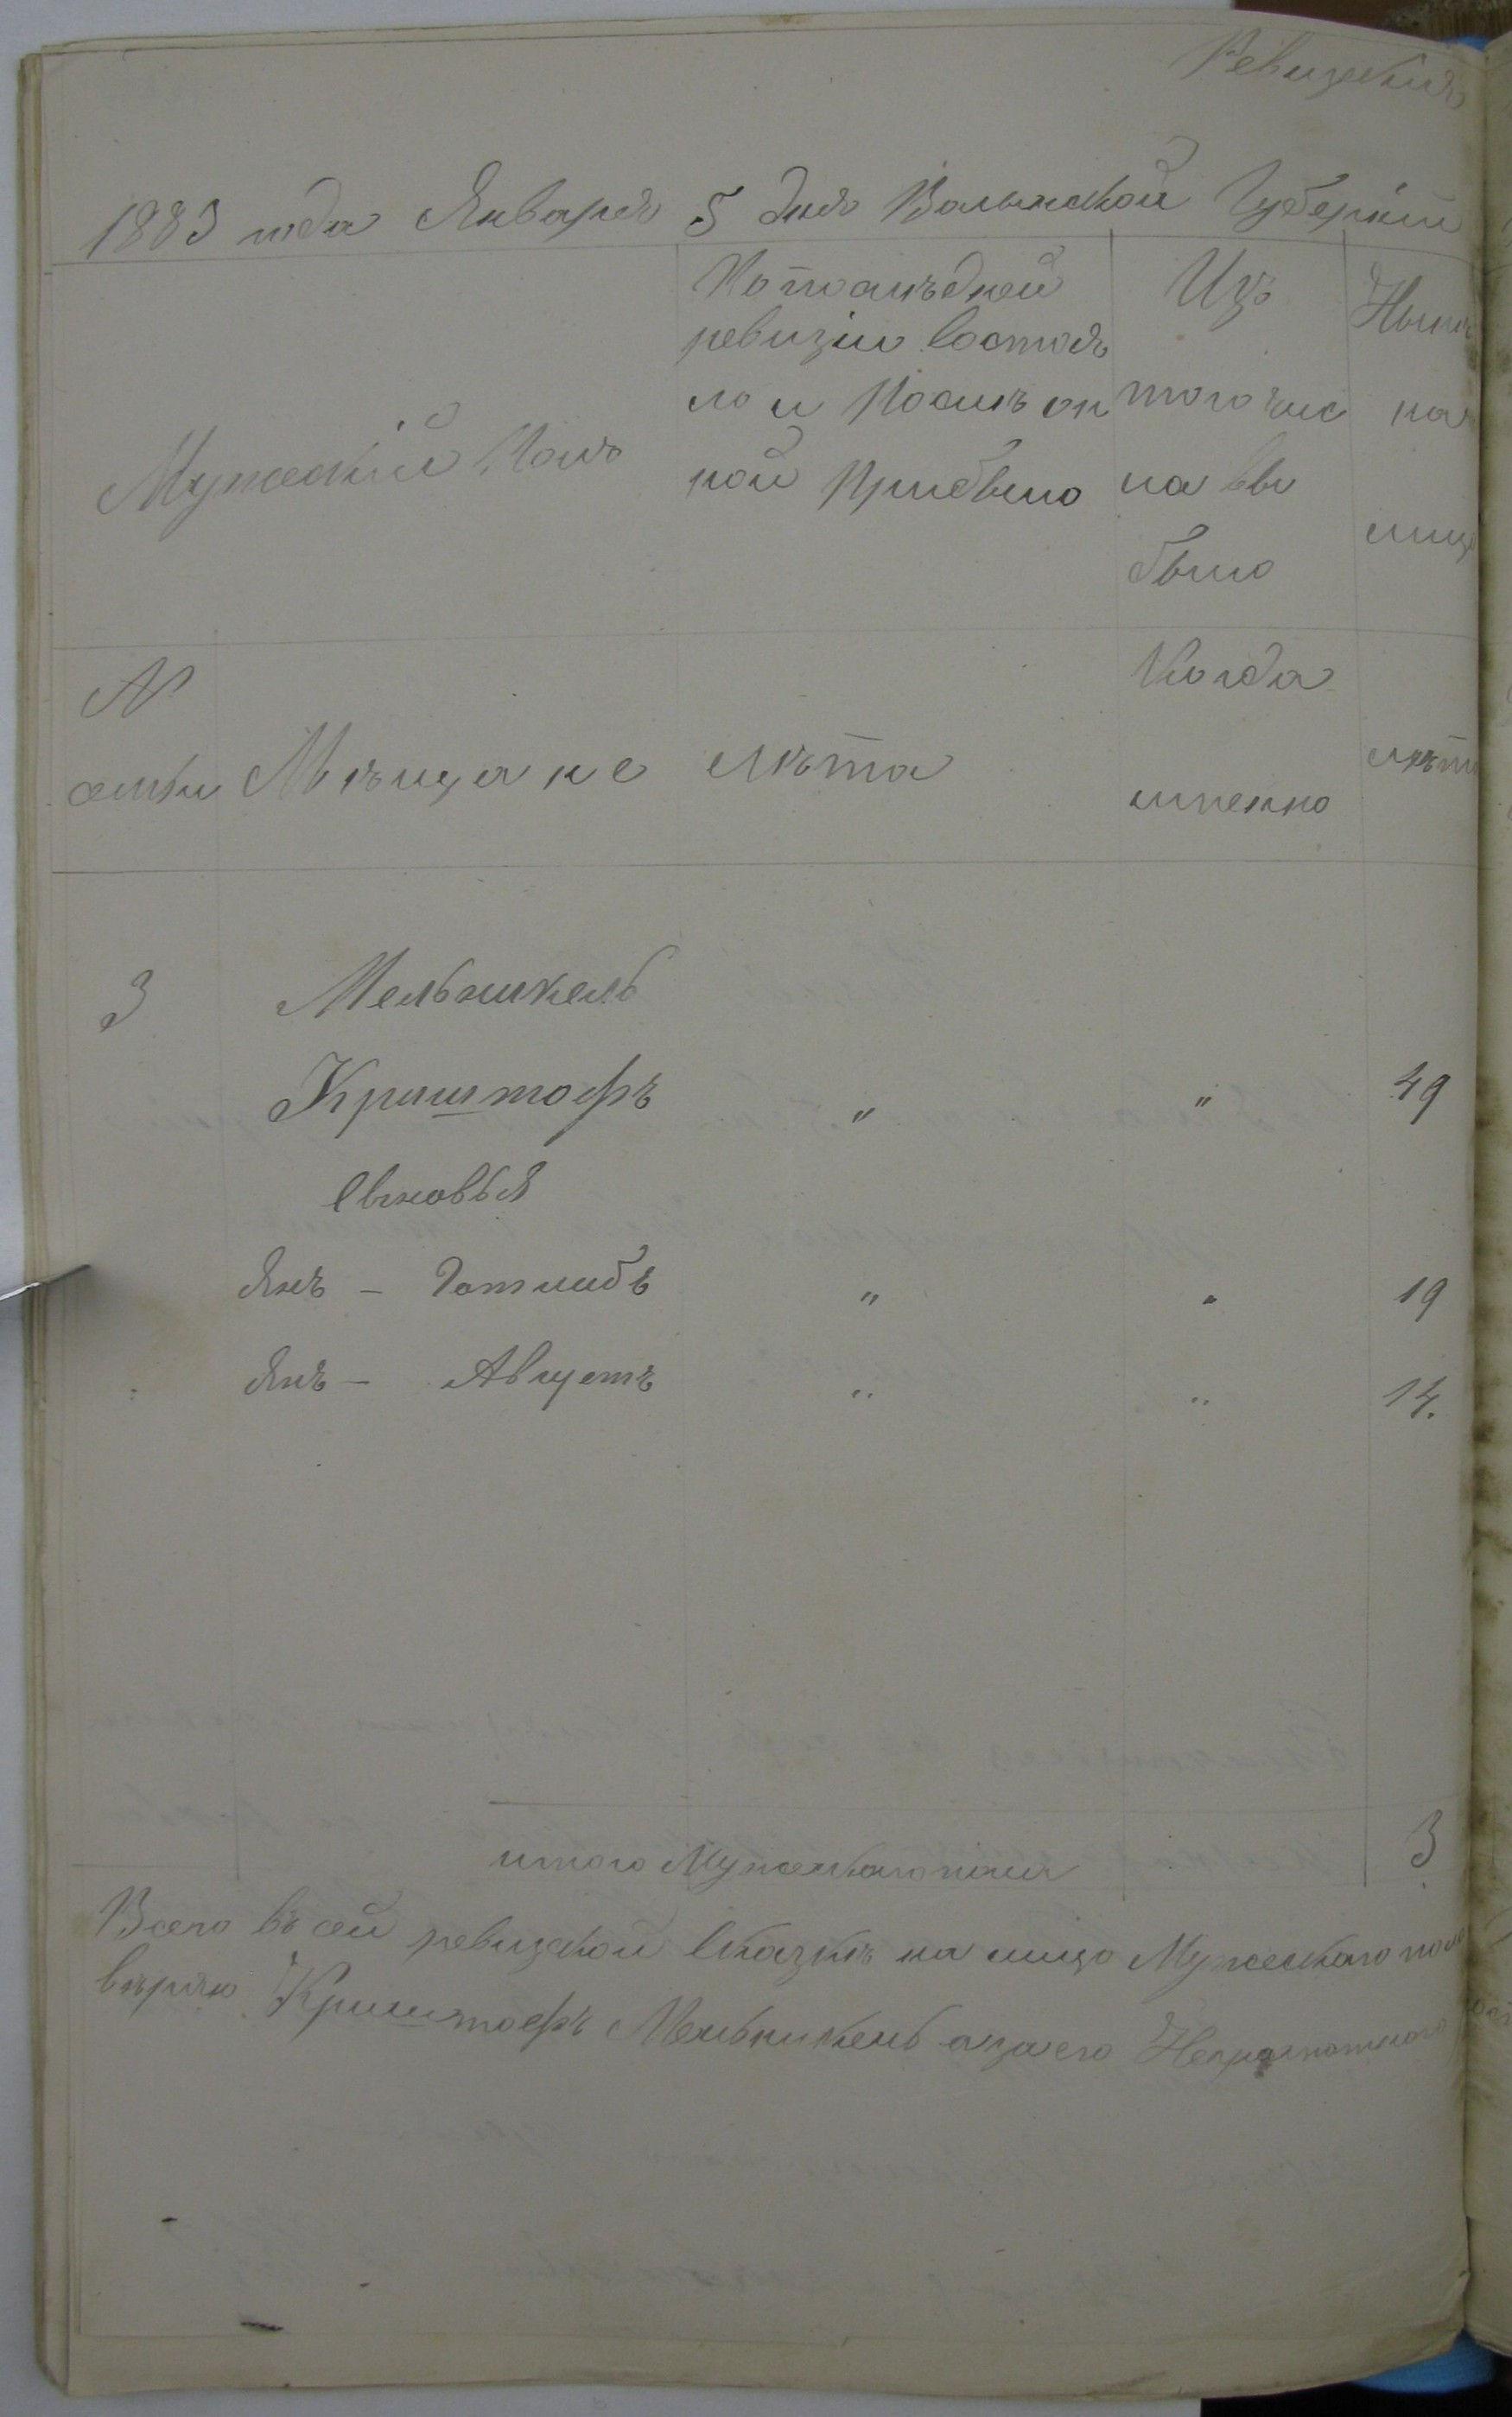 Ревизская
1883 года Января 5 дня Волынской Губернiи
Мужескiй Полъ
По последней
ревизiи Состоя
ло и После он
ной Прибыло
Изъ
того чис
ла вы
было
Ныне
на
лицо
№
семьи
Мѣщане
лѣта
Когда
именно
лѣта
3 Мельникель
Криштофъ „ „ 49
Сыновья
Янъ - Готлибъ „ „ 19
Янъ - Августъ „ „ 14.
итого Мужескаго пола 3
Всего въ сей ревизской Сказкѣ на лицо Мужескаго пола
вѣрно Криштофъ Мельникель а за его Неграмотного